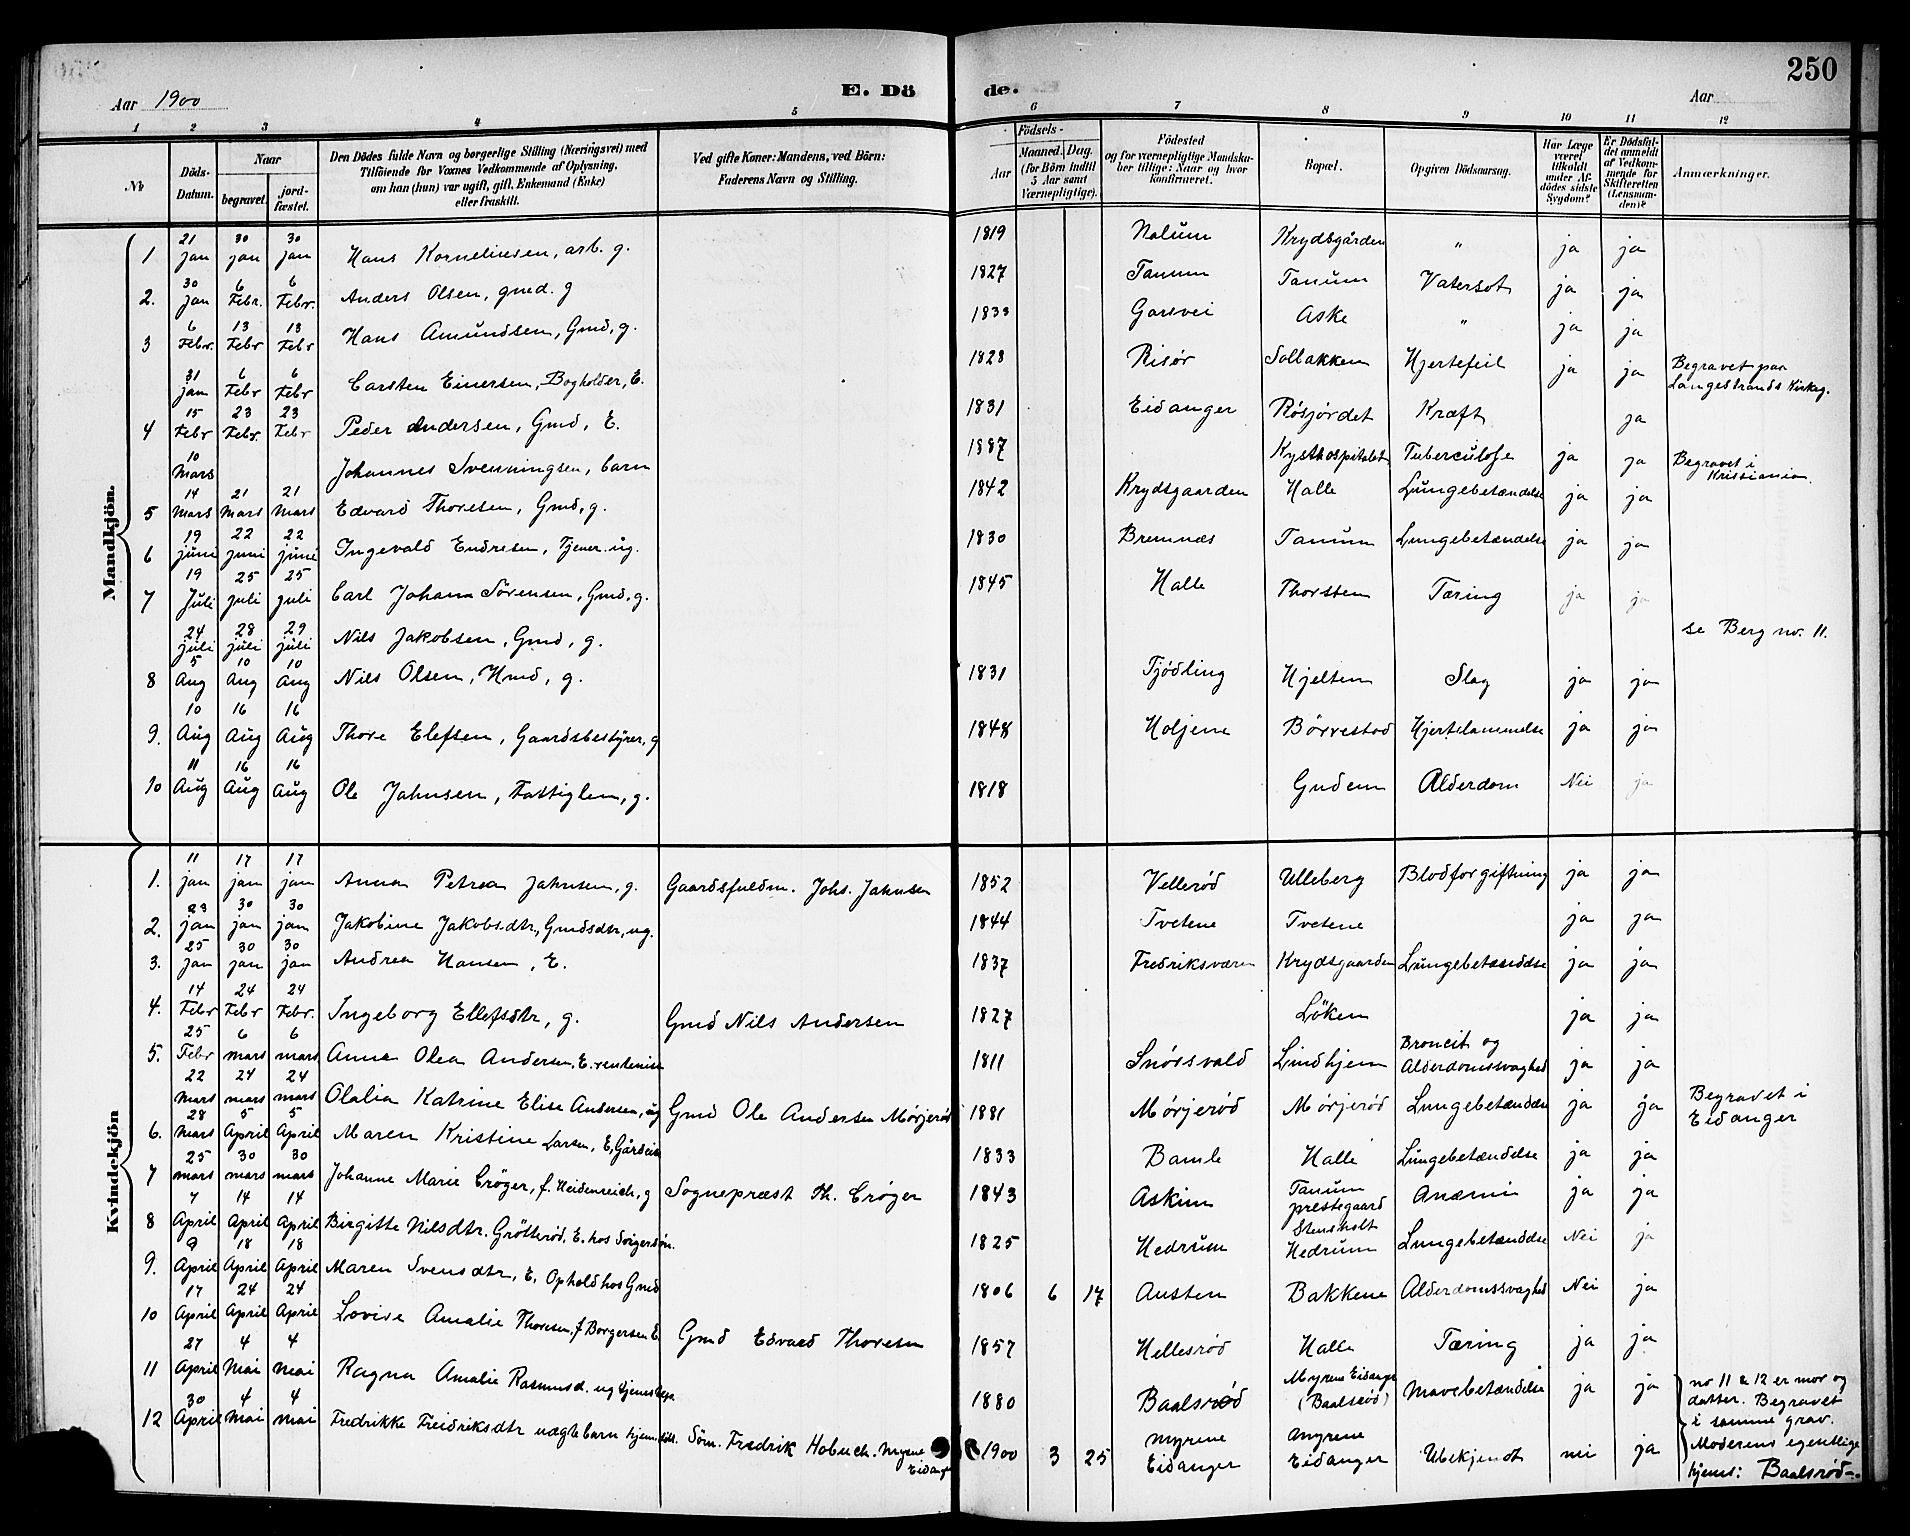 250
Aar 1900
E. Dö
de.
Aar
1 2 3 4 5 6 7 8 9 10 11 12
No
Döds-Datum.
Naar
begravet.
jord-fæstet.
Den Dödes fulde Navn og borgerlige Stilling (Næringsvei) med
Tilföiende for Voxnes Vedkommende af Oplysning,
om han (hun) var ugift, gift, Enkemand (Enke)
eller fraskilt.
Ved gifte Koner: Mandens, ved Börn:
Faderens Navn og Stilling.
Födsels-
Aar
Maaned. Dag.
(for Börn indtil
5 Aar samt
Værnepligtige).
Födested
og for værnepligtige Mandska-
ber tillige: Naar og hvor
konfirmeret.
Bopæl.
Opgiven Dödsaarsag.
Har Læge
været
tilkaldt
under Af-
dödes sidste
Sygdom?
Er Dödsfal-
det anmeldt
af Vedkom-
mende for
Skifteretten
(Lensman-
den)?
Anmærkninger.
Mandkjön.
1 21 jan 30 jan 30 jan Hans Korneliusen, arb. g. 1819 Nalum Krydsgården " ja ja
2. 30 jan 6 Febr. 6 Febr. Anders Olsen, gmd. g 1827 Tanum Tanum Vatersot ja ja
3 6 Febr. 13 Febr 13 Febr Hans Amundsen, Gmd, g. 1833 Gorsvei Aske " ja ja
31 jan 6 Febr 6 Febr Carsten Einersen, Bogholder, E. 1823 Risør Solbakken Hjertefeil ja ja Begravet paa
Langestrands Kirkeg.
4 15 Febr 23 Febr. 23 Febr Peder Andersen, Gmd, E. 1831 Eidanger Røsjordet Kræft ja
10 Mars Johannes Svenningsen, barn 1887 Kysthospitalet Tuberculose ja ja Begravet i
Kristiania.
5 14 Mars 21 Mars 21 Mars Edvard Thoresen, Gmd, g. 1842 Krydsgaarden Halle Lungebetændelse ja ja
6 19 juni 22 juni 22 juni Ingevald Endresen, Tjener. ug. 1830 Bremnæs Tanum Lungebetændelse ja ja
7 19 Juli 25 juli 25 juli Carl Johann Sørensen, Gmd, g. 1845 Halle Thorsten Tæring ja ja
24 juli 28 juli 29 juli Nils Jakobsen, Gmd, g. se Berg no. 11.
8 5 Aug 10 Aug 10 Aug Nils Olsen, Hmd, g. 1831 Tjødling Hjelten Slag ja ja
9. 10 Aug 16 Aug 16 Aug Thore Elefsen, Gaardsbestyrer, g 1848 Holjene Børrestad Hjertelammelse ja ja
10 11 Aug 16 Aug 16 Aug Ole Jahnsen, Fattiglem, g. 1818 Gudem Alderdom Nei ja
Kvindekjön
1. 11 jan 17 jan 17 jan Anna Petrea Jahnsen, g. Gaardsfuldm. Johs. Jahnsen 1852 Vellerød Ulleberg Blodforgiftning ja ja
2. 23 jan 30 jan 30 jan Jakobine Jakobsdtr, Gmdsdtr, ug. 1844 Tvetene Tvetene ja ja
3. 25 jan 30 jan 30 jan Andrea Hansen, E. 1837 Fredriksværn Krydsgaarden Lungebetændelse ja ja
4. 14 Febr 24 Febr 24 Febr. Ingeborg Ellefsdtr, g. Gmd Nils Andersen 1827 Löken ja ja
5. 25 Febr 6 mars 6 mars Anna Olea Andersen, E. rentenist 1811 Snørsvald Lindhjem Broncit og
Alderdomssvaghed ja ja
22 Mars 24 mars 24 mars Olalia Katrine Elise Andersen, ug Gmd Ole Andersen Mørjerød 1881 Mørjerød Mørjerød Lungebetændelse ja ja Begravet i
Eidanger
6. 28 mars 5 April 5 April Maren Kristine Larsen, E, 1833 Bamle Halle Lungebetændelse ja ja
7 25 mars 30 mars 30 mars Johanne Marie Crøger, f. Heidenreich, g Sognepræst Th. Crøger 1843 Askim Tanum
prestegaard Anæmi ja ja
8 7 April 14 April 14 April Birgitte Nilsdtr. Grötterød, E. hos 1825 Hedrum Stensholt
Hedrum Lungebetændelse Nei ja
9. 9 April 18 April 18 April Maren Svensdtr, E, Ophold hos Gmd 1806 6 17 Austen Bakkene Alderdomssvaghed Nei ja
10 17 April 24 April 24 April Lovise Amalie Thoresen, f Borgersen E. Gmd Edvard Thoresen 1857 Hellesrød Halle Tæring ja ja
11 27 April 4 Mai 4 mai Ragna Amalie Rasmusd. ug 1880 Baalsrød Myrene Eidanger
(Baalsrød) Mavebetændelse ja ja no 11 & 12 er mor og
datter. Begravet
i samme grav.
12 30 April 4 Mai 4 mai Fredrikke Freidriksdtr uægte barn hjemdöbt. Söm. Fredrik Hobuch. Myrene
Eidanger 1900 3 25 Myrene
Eidanger Myrene
Eidanger Ubekjendt nei ja Moderens egentlige
hjem: Baalsrød